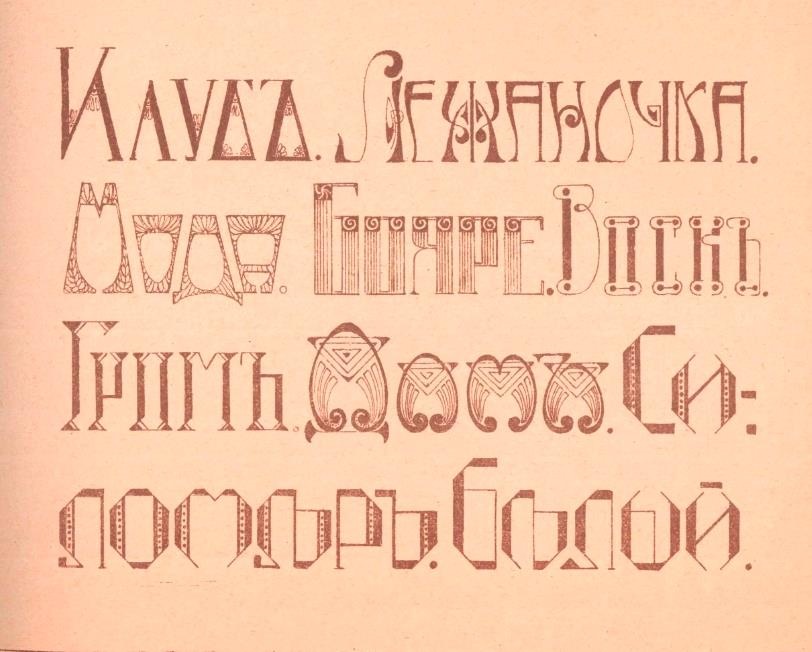 Клубъ. Лежаночка.
Мода. Бояре. Воскъ.
Громъ. Домъ. Си=
ломѣръ. Бѣлый.